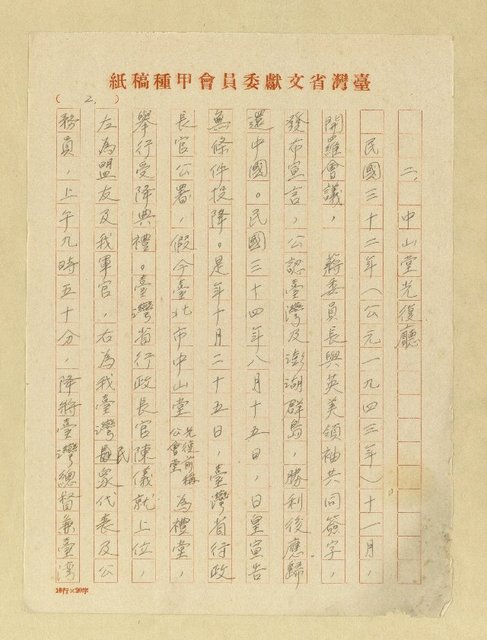 臺灣省文獻委員會甲種稿紙
(2.)
二、中山堂光復廳
民國三十二年(公元一九四三年)十一月,
開羅會議,蔣委員長與英美領袖共同簽字,
發布宣言,公認臺灣及澎湖群島,勝利後應歸
還中國。民國三十四年八月十五日,日皇宣告
無條件投降。是年十月二十五日,臺灣省行政
長官公署,假今臺北市中山堂光復前稱公會堂為禮堂,
舉行受降典禮。臺灣省行政長官陳儀就上位,
左為盟友及我軍官,右為我臺灣民眾代表及公
務員,上午九時五十分,降將臺灣總督兼臺灣